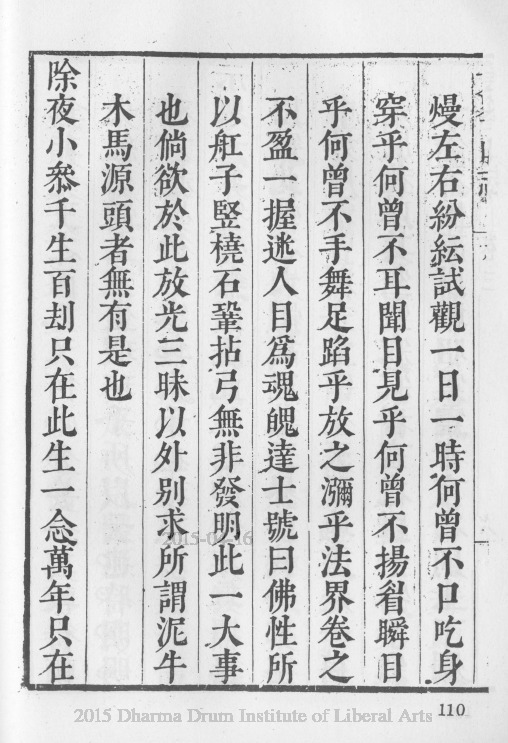 熳左右紛紜試觀一日一時何曾不口吃身
穿乎何曾不耳聞目見乎何曾不揚眉瞬目
乎何曾不手舞足蹈乎放之瀰乎法界卷之
不盈一握迷人目為魂魄達士號曰佛性所
以舡子竪橈石鞏拈弓無非發明此一大事
也倘欲於此放光三昧以外別求所謂泥牛
木馬源頭者無有是也
除夜小叅千生百刦只在此生一念萬年只在
2015-04-16
2015 Dharma Drum Institute of Liberal Arts
110